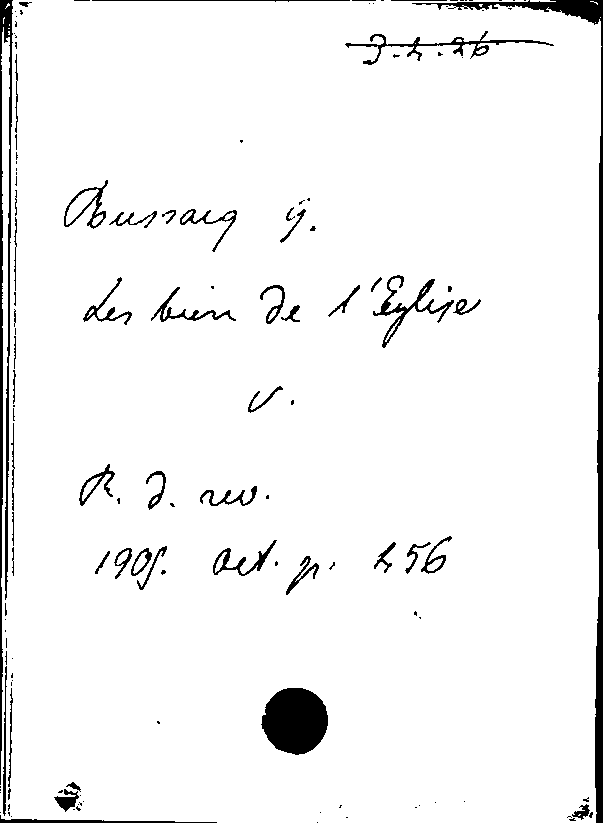 3.4.26
Bussacq G.
Les bien de l'Eglise
v.
R. d. rev.
1905. Oct. p. 456